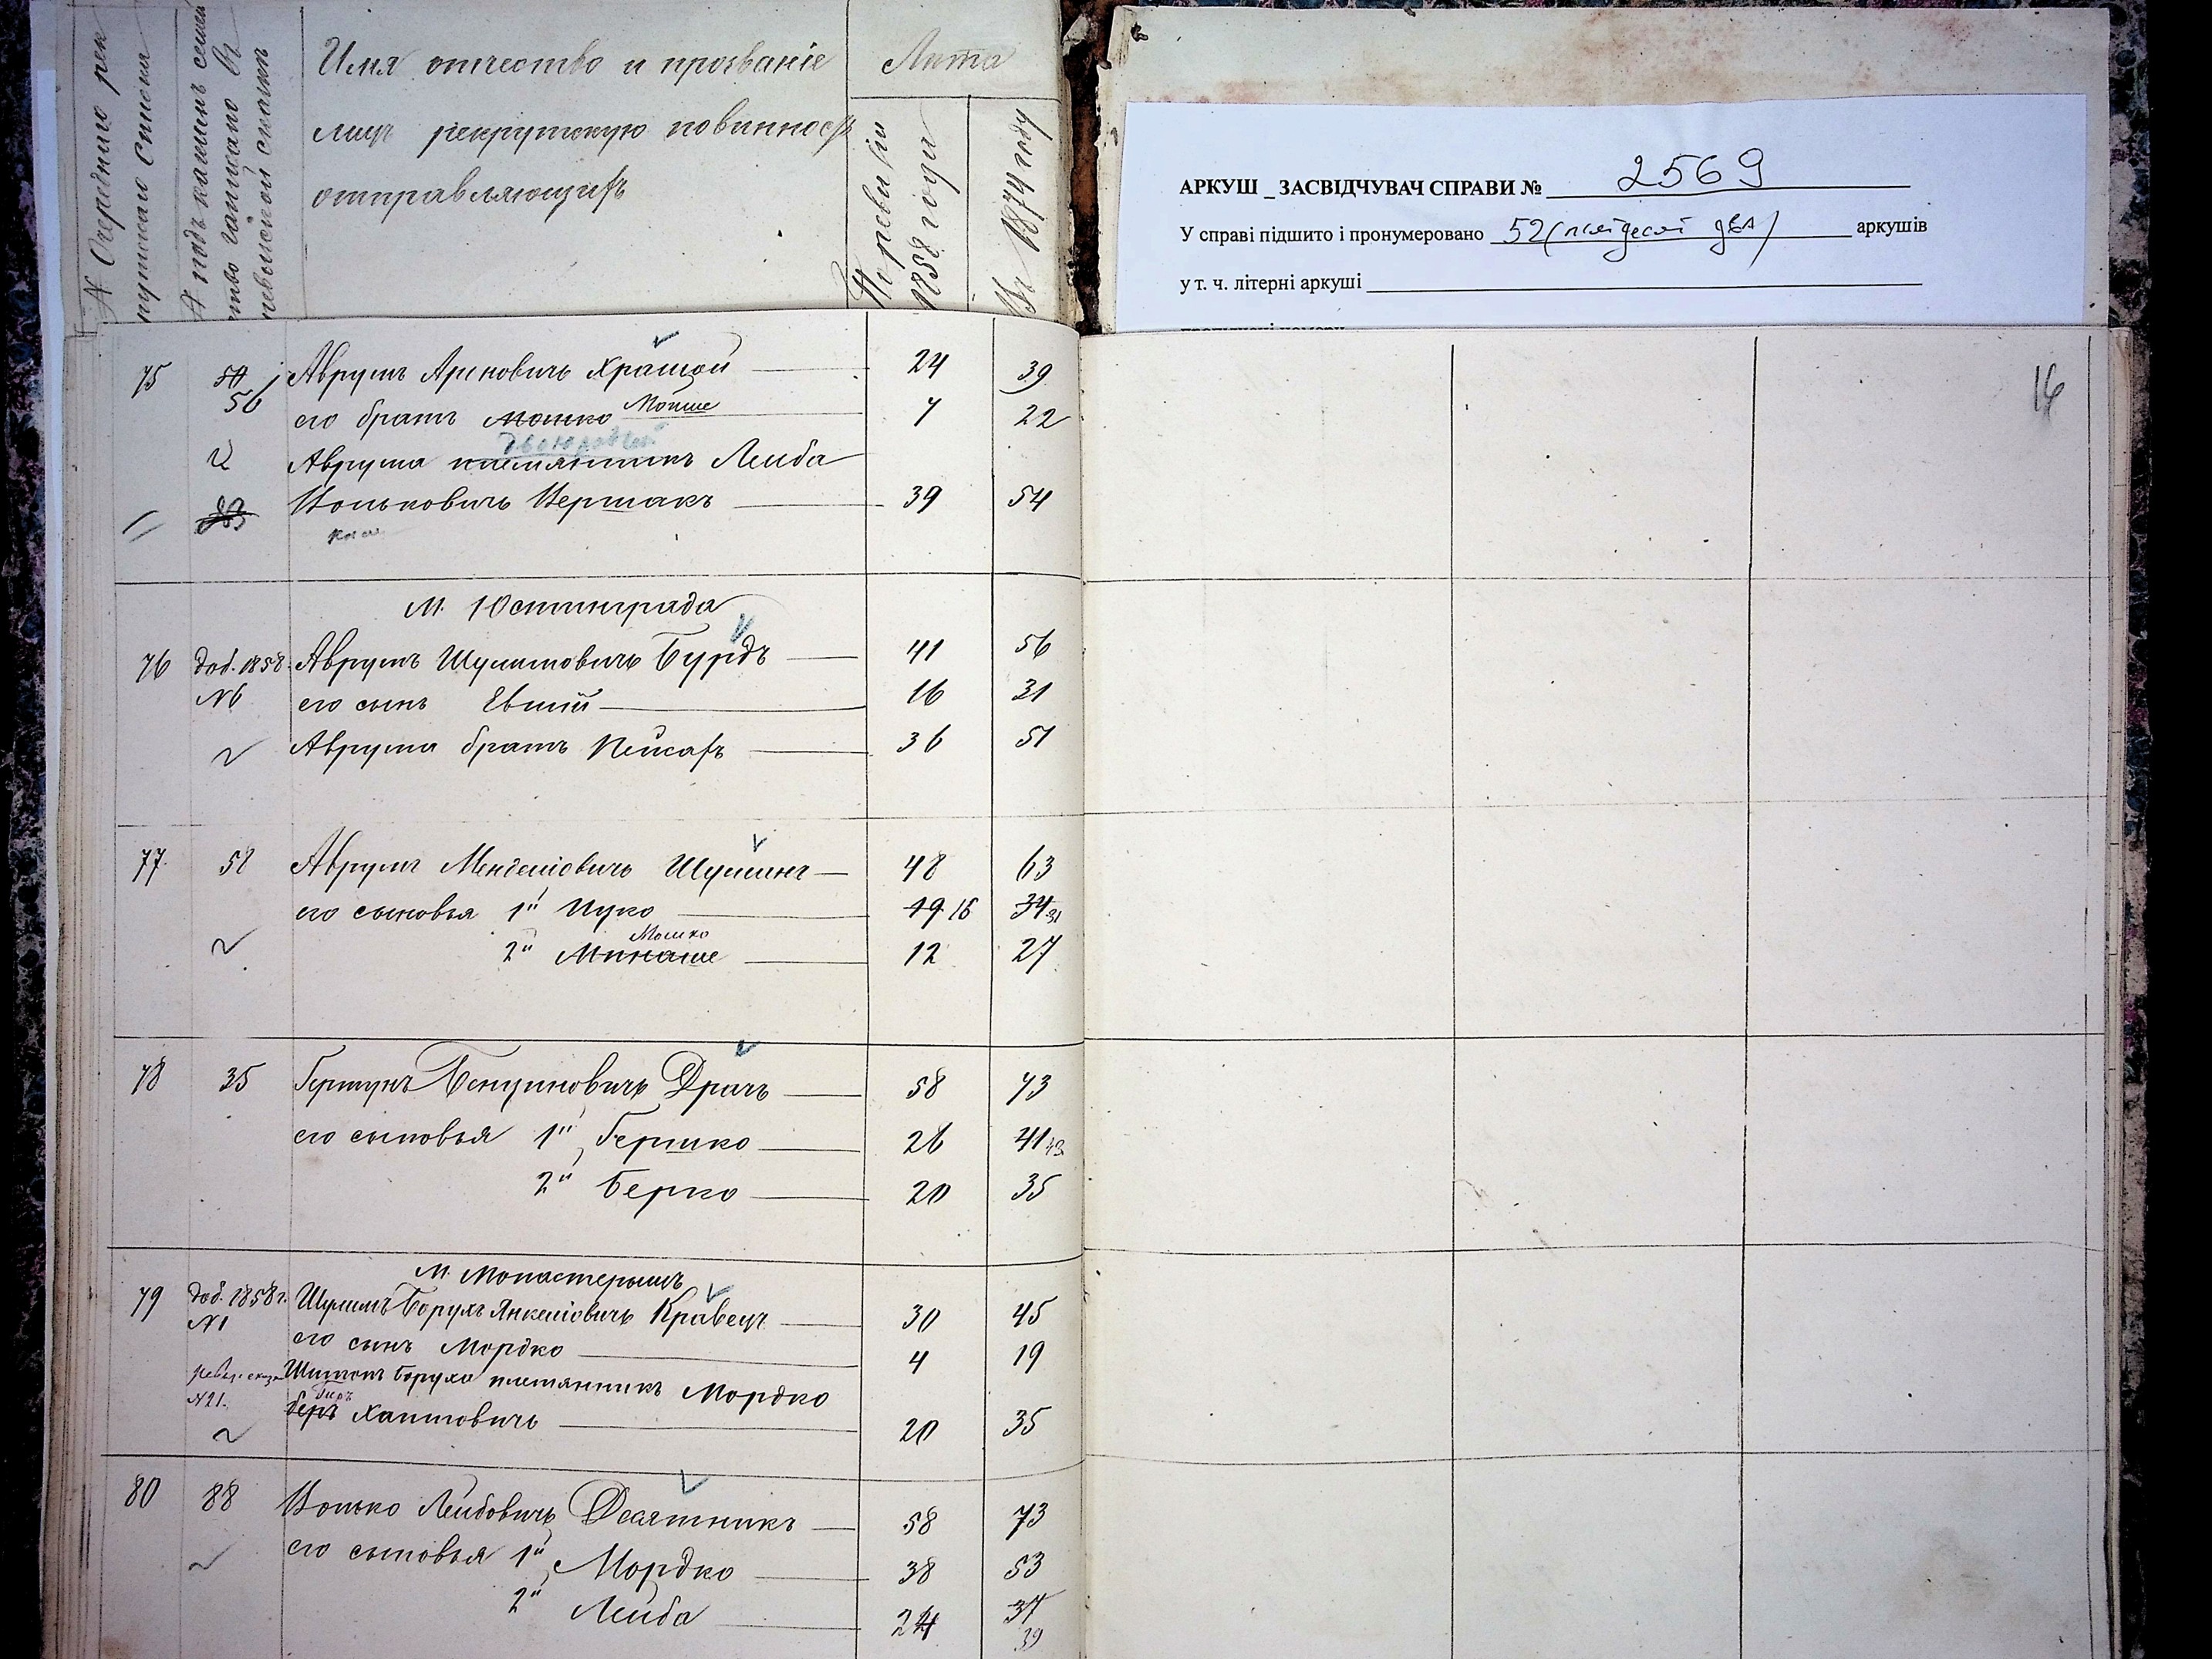 № Очередного рек
рутского списка
№ подъ какимъ семей
ство записано въ
ревизской сказкѣ
Имя отчество и прозваніе
лицъ рекрутскую повинность
отправляющихъ
Лѣта
По ревизіи
1858 года
Въ 1874 году
АРКУШ _ ЗАСВІДЧУВАЧ СПРАВИ № 2569
У справі підшито і пронумеровано 52 (пятдесят два) аркушів
у т. ч. літерні аркуші
16
75 54 Аврумъ Ароновичъ Храмой 24 39
56 его братъ Мошко Мойше 7 22
двоюродный
Аврума племянникъ Лейба
Ионьковичъ Вершакъ 39 54
М. Юстинграда
76 доб. 1858 Аврумъ Шулимовичъ Бурдъ 41 56
№6 его сынъ Евшій 16 31
Аврума братъ Пейсахъ 36 51
77 58 Аврумъ Менделіовичъ Шулинъ 48 63
его сыновья 1й Ицко 19 16 34 31
Мошко
2й Минаше 12 27
78 35 Гершунъ Бенціновичъ Драчъ 58 73
его сыновья 1й Гершко 26 41 43
2й Берко 20 35
М. Монастерыщъ
79 доб. 1858 г. Шулимъ Борухъ Янкеліовичъ Кравецъ 30 45
№1 его сынъ Мордко 4 19
Шулимъ Боруха племянникъ Мордко
№21. Беръ Хаимовичъ 20 35
80 88 Ионько Лейбовичъ Десятникъ 58 73
его сыновья 1й Мордко 38 53
2й Лейба 24 37
39